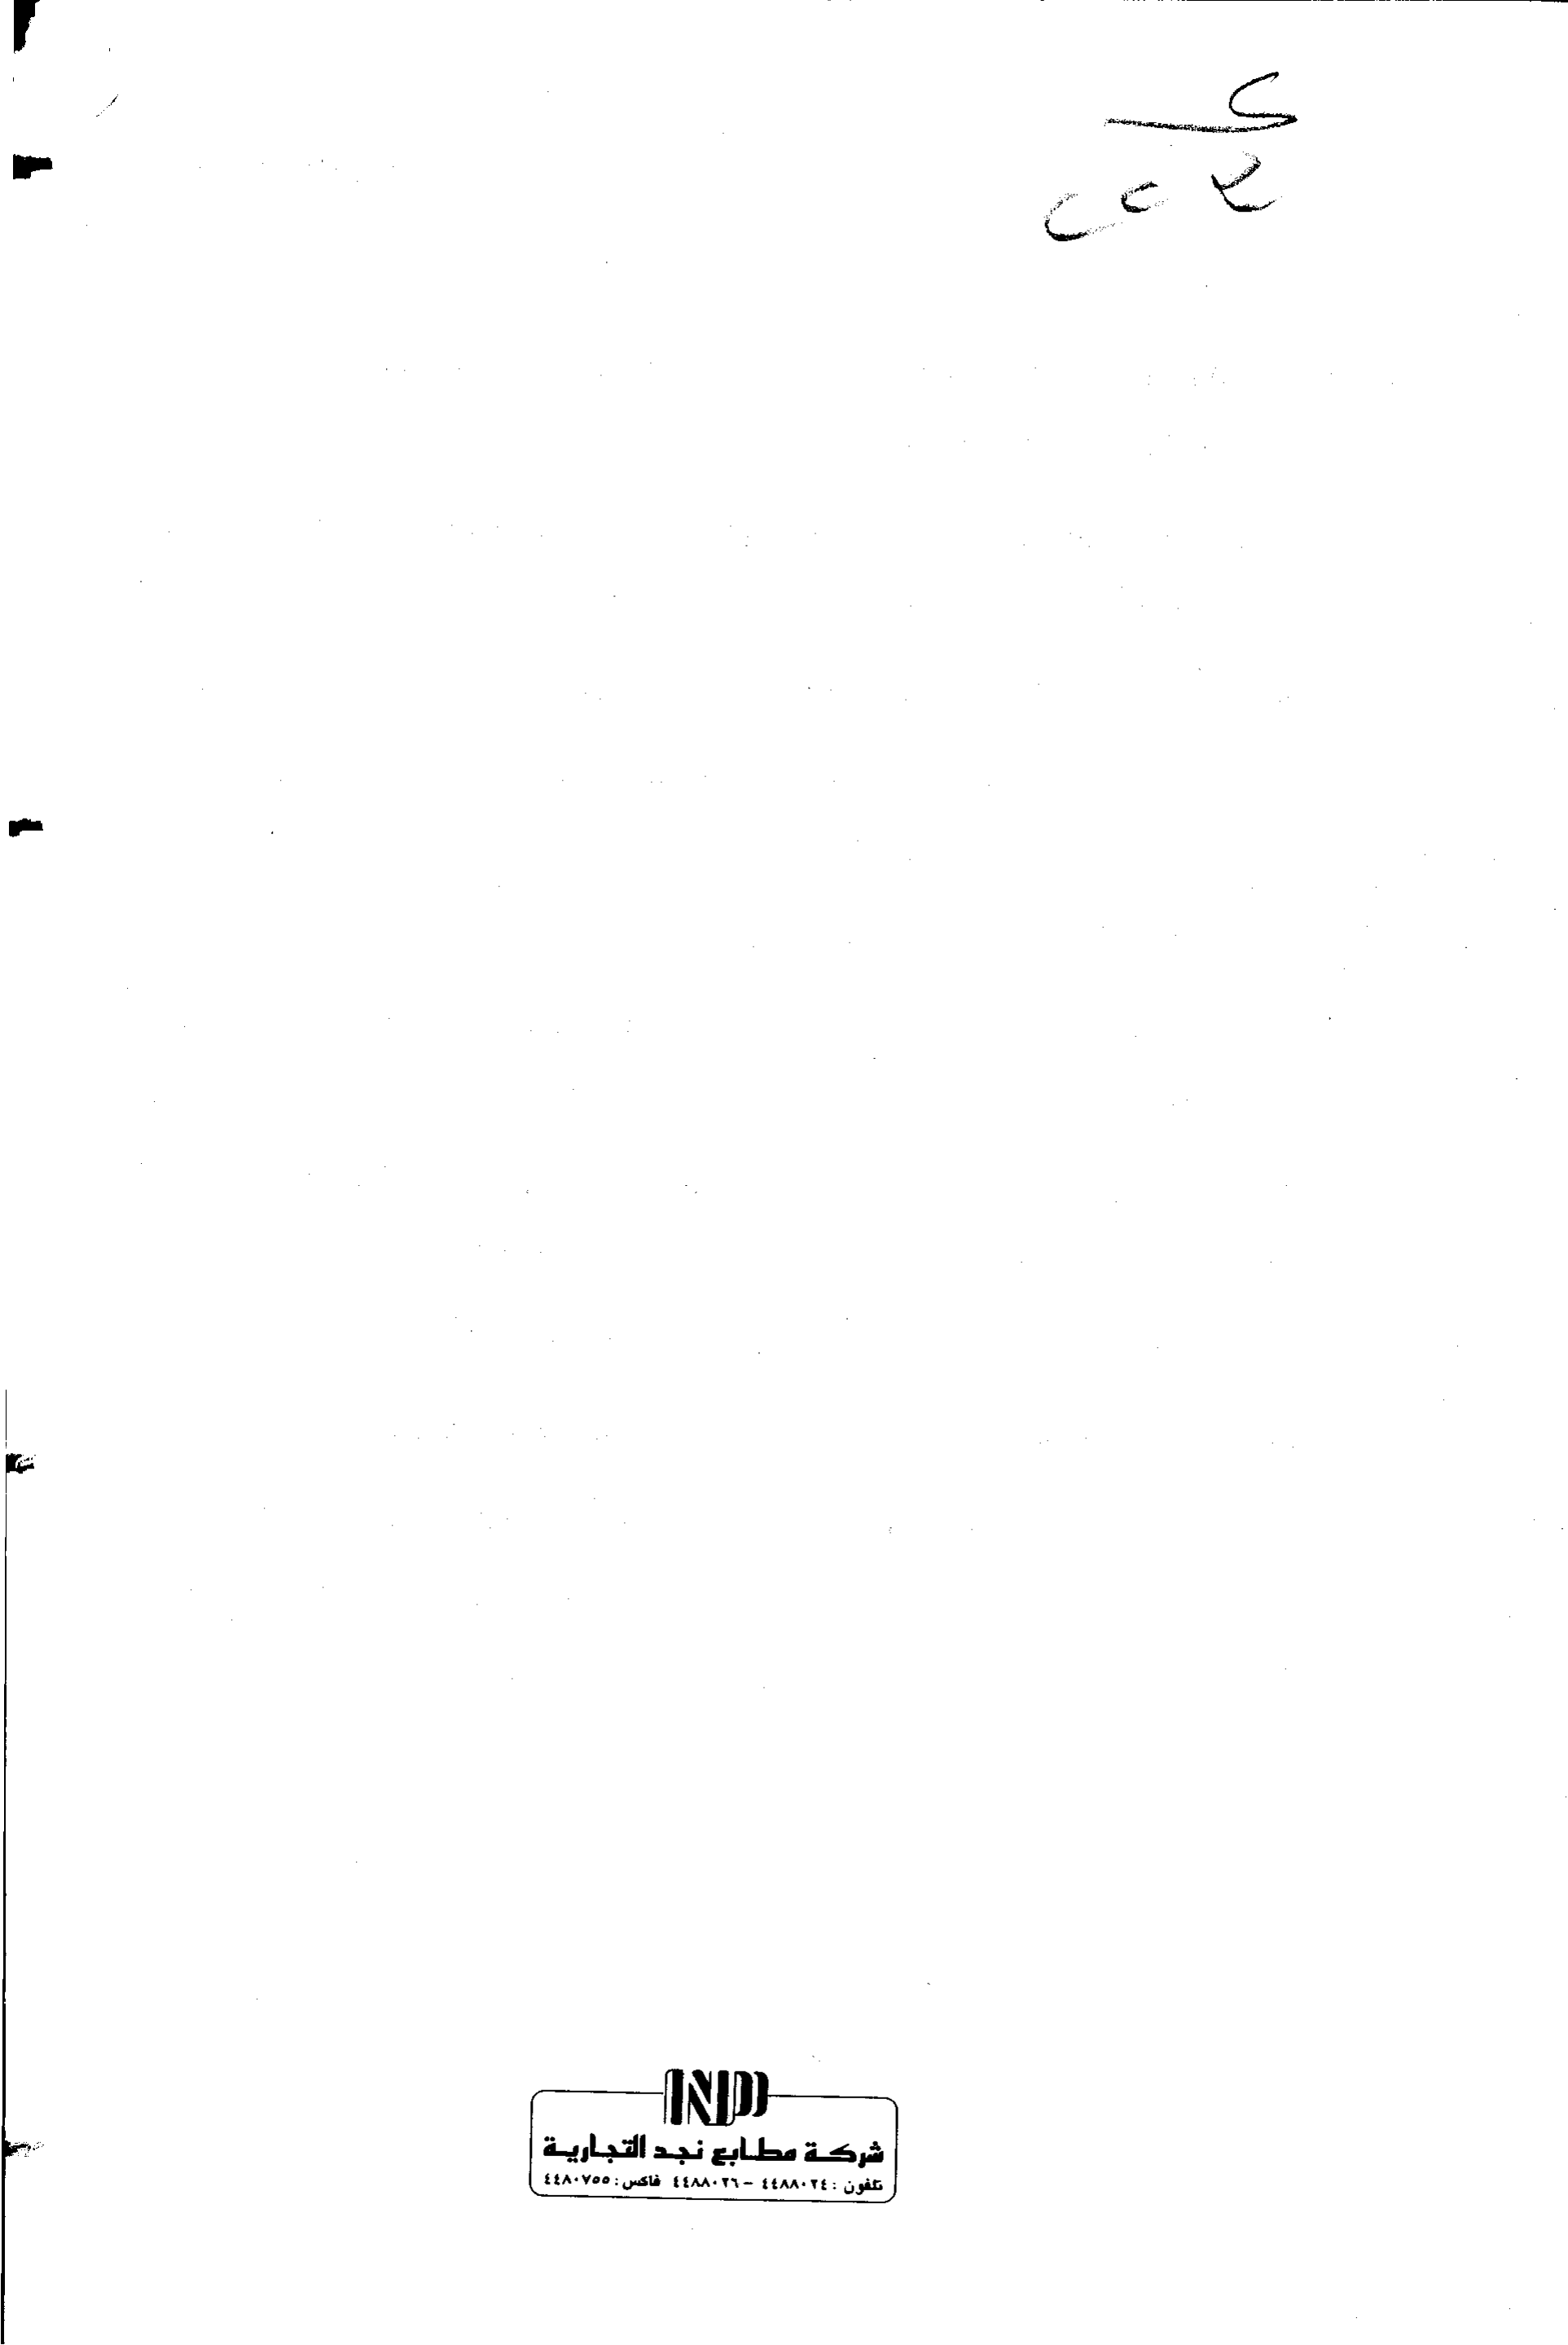 NP
شركة مطابع نجد التجارية
تلفون : ٤٤٨٨٠٢٤ – ٤٤٨٨٠٢٦ فاكس : ٤٤٨٠٧٥٥